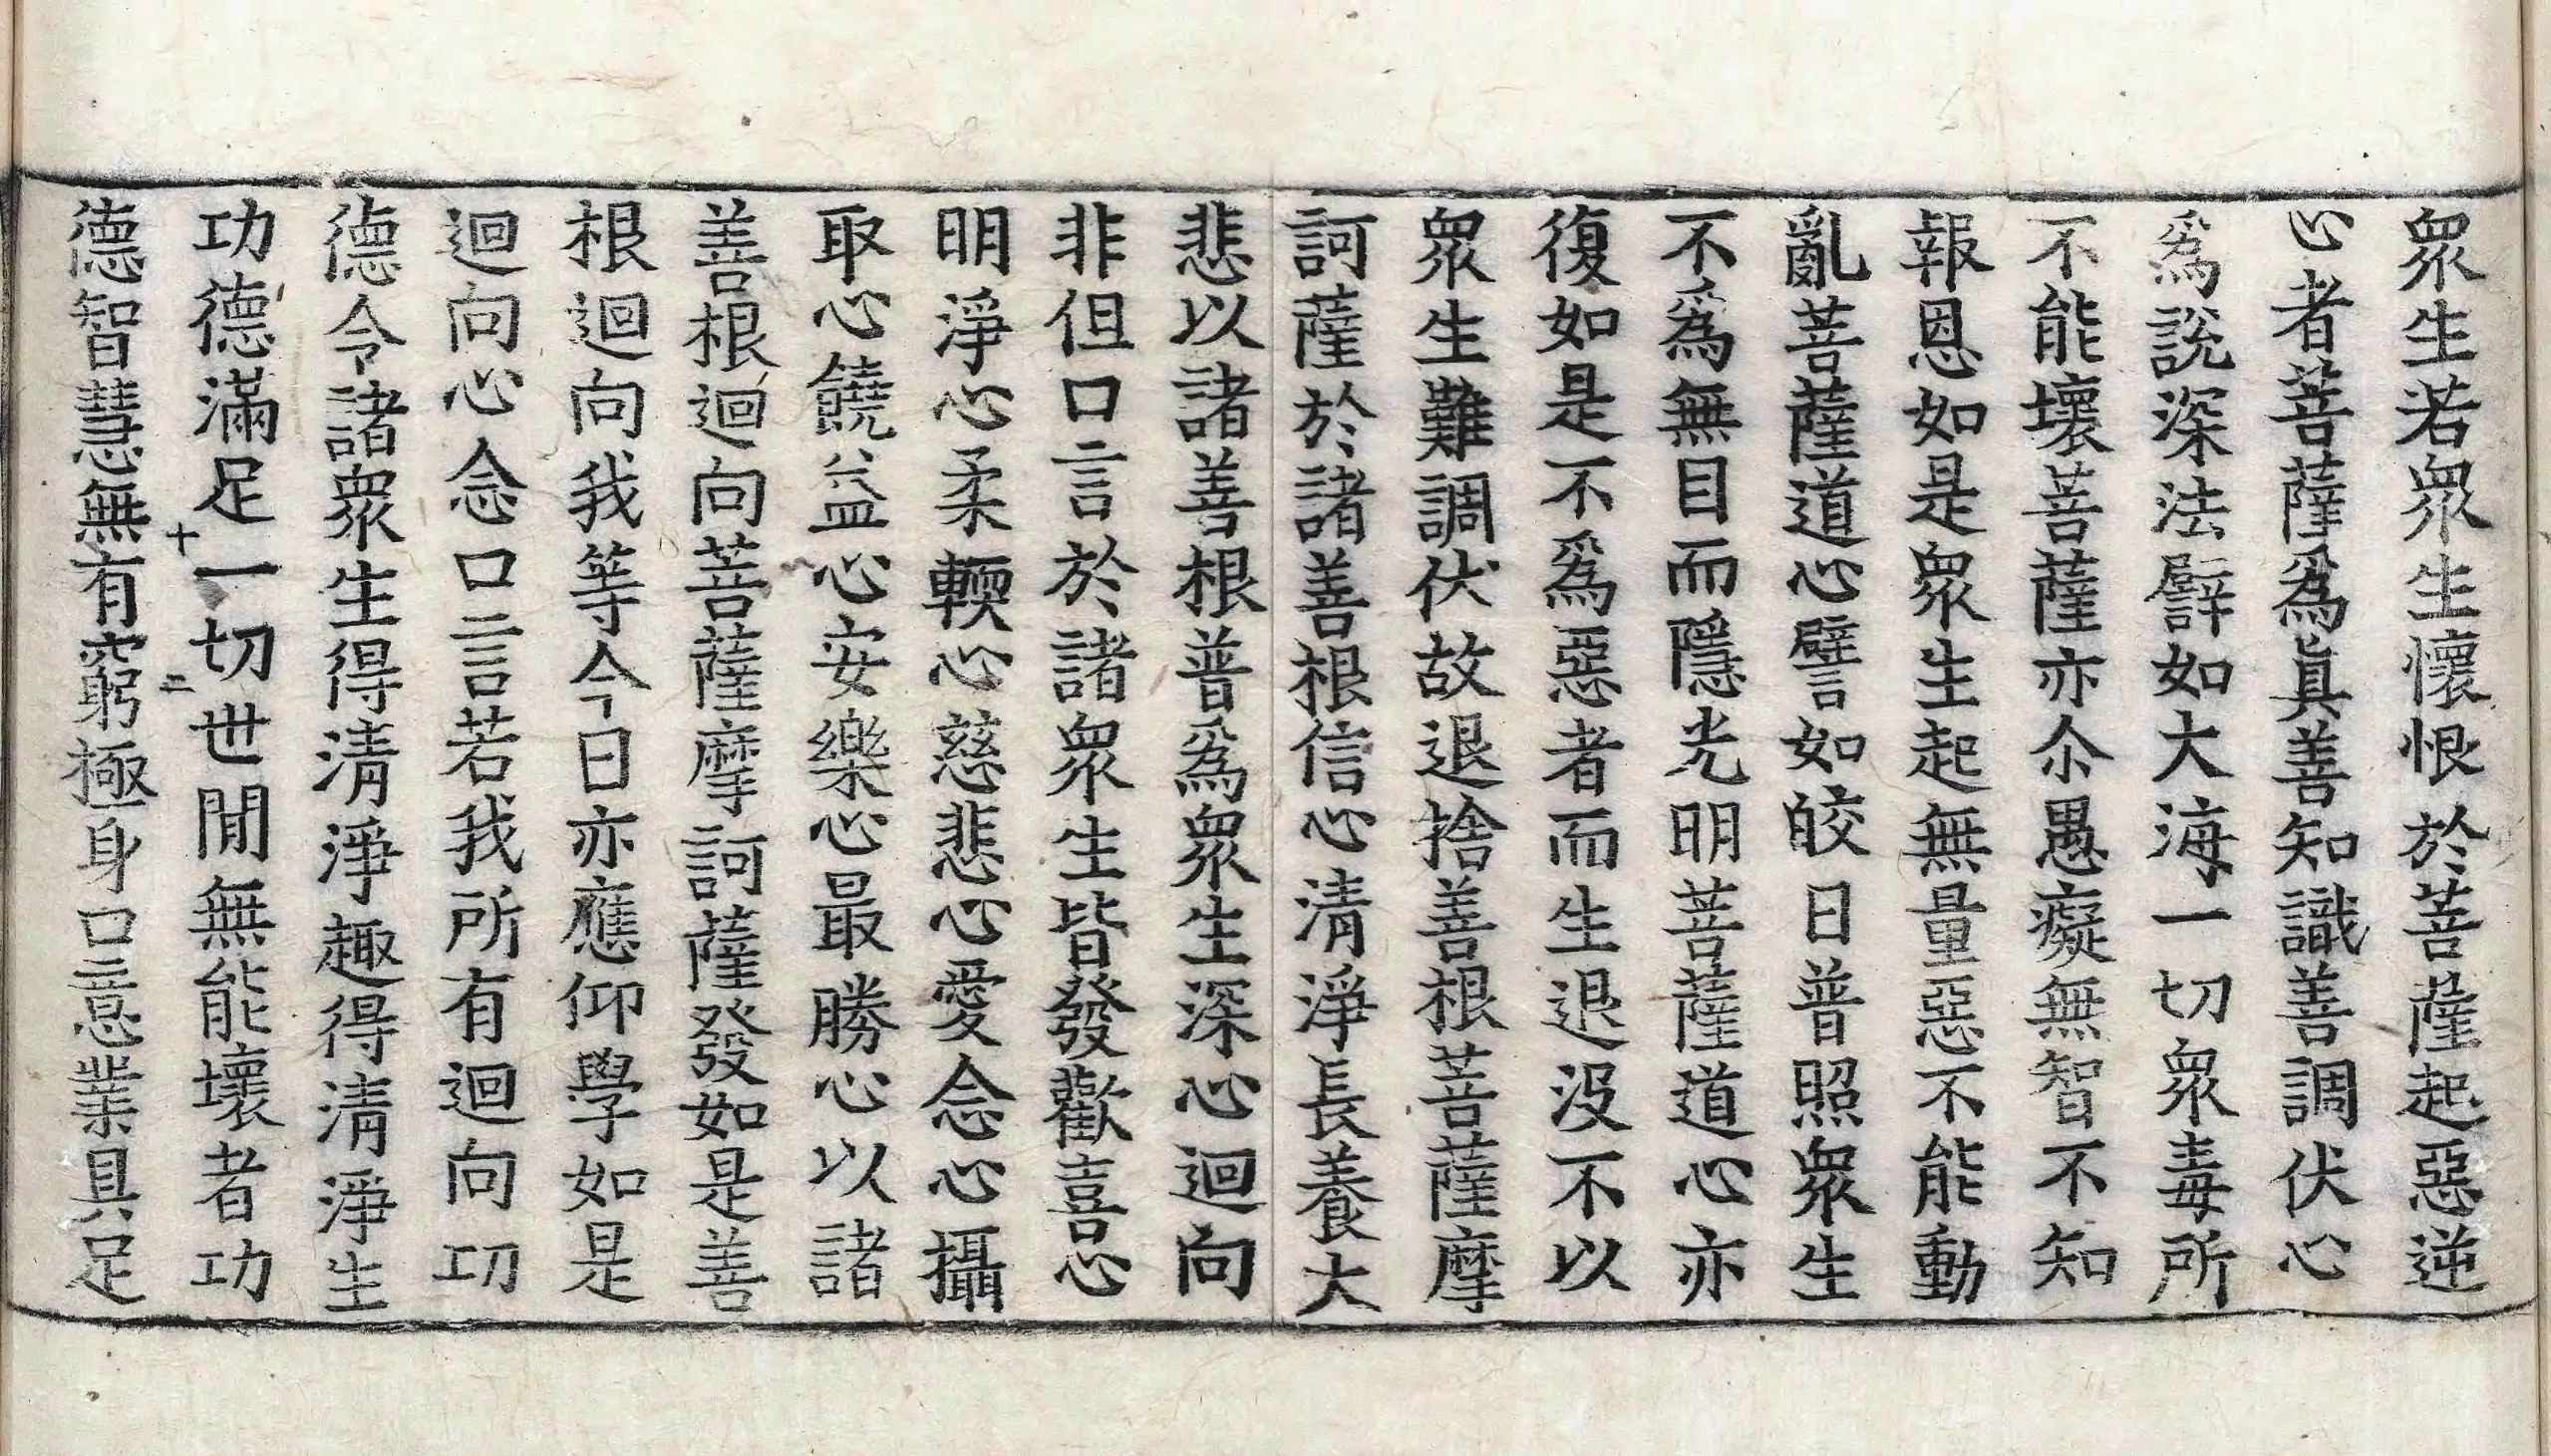 眾生若眾生懷恨於菩薩起惡逆
心者菩薩為眞善知識善調伏心
為說深法譬如大海一切眾毒所
不能壞菩薩亦尒愚癡無智不知
報恩如是眾生起無量惡不能動
亂菩薩道心譬如皎日普照眾生
不為無目而隱光明菩薩道心亦
復如是不為惡者而生退没不以
眾生難調伏故退捨善根菩薩摩
訶薩於諸善根信心清淨長養大
悲以諸善根普為眾生深心迴向
非但口言於諸眾生皆發歡喜心
明淨心柔軟心慈悲心愛念心攝
取心饒益心安樂心最勝心以諸
善根迴向菩薩摩訶薩發如是善
根迴向我等今日亦應仰學如是
迴向心念口言若我所有迴向功
德令諸眾生得清淨趣得清淨生
功德滿足一切世間無能壞者功
十二
德智慧無有窮極身口意業具足